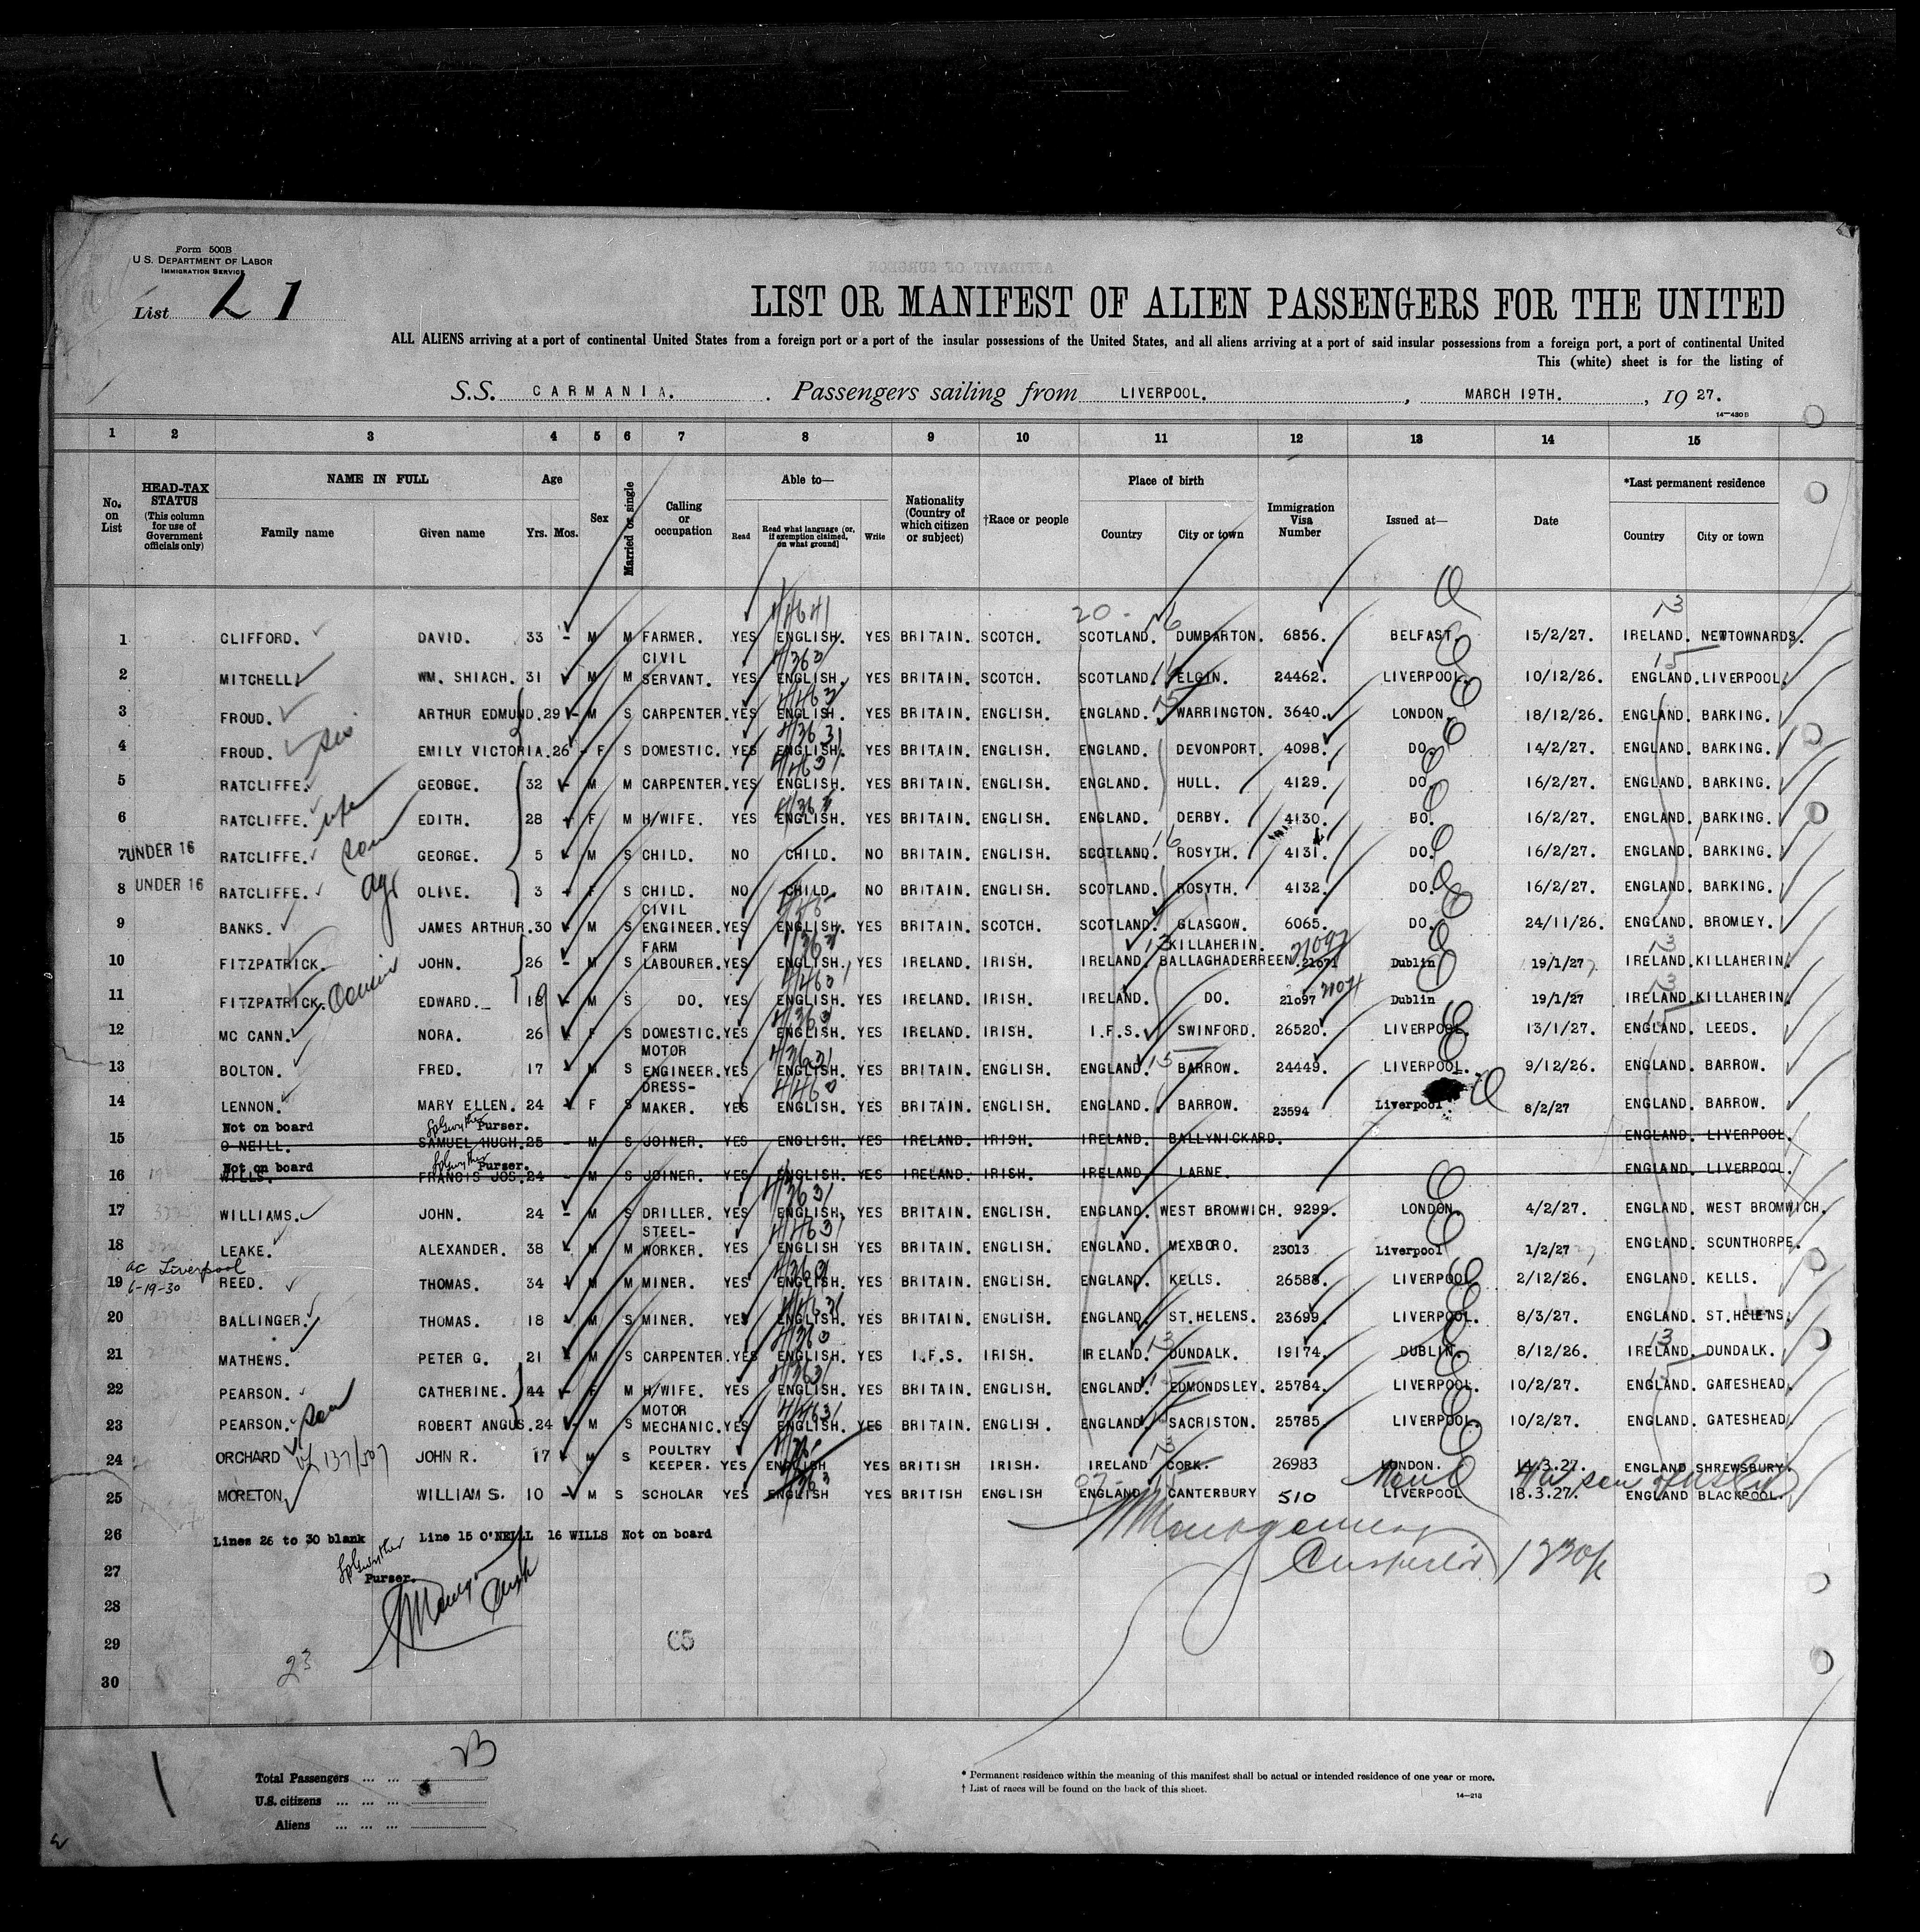 Form 500B
U.S. DEPARTMENT OF LABOR
IMMIGRATION SERVICE
List L 1
LIST OR MANIFEST OF ALIEN PASSENGERS FOR THE UNITED
ALL ALIENS arriving at a port of continental United States from a foreign port or a port of the insular possessions of the United States, and all aliens arriving at a port of said insular possessions from a foreign port, a port of continental United
This (white) sheet is for the listing of
S.S. CARMANIA. Passengers sailing from LIVERPOOL. , MARCH 19TH. , 19 27.
14—430B
1 2 3 4 5 6 7 8 9 10 11 12 13 14 15
No. on List
HEAD-TAX STATUS (This column for use of Government officials only)
NAME IN FULL
Family name Given name
Age
Yrs. Mos.
Sex
Married or single
Calling or occupation
Able to—
Read Read what language (or, if exemption claimed, on what ground) Write
Nationality (Country of which citizen or subject)
†Race or people
Place of birth
Country City or town
Immigration Visa Number
Issued at—
Date
*Last permanent residence
Country City or town
1 CLIFFORD. DAVID. 33 - M M FARMER. YES ENGLISH. YES BRITAIN. SCOTCH. SCOTLAND. DUMBARTON. 6856. BELFAST. 15/2/27. IRELAND. NEWTOWNARDS.
2 MITCHELL WM. SHIACH. 31 M M CIVIL SERVANT. YES ENGLISH. YES BRITAIN. SCOTCH. SCOTLAND. ELGIN. 24462. LIVERPOOL. 10/12/26. ENGLAND. LIVERPOOL.
3 FROUD. ARTHUR EDMUND. 29 - M S CARPENTER. YES ENGLISH. YES BRITAIN. ENGLISH. ENGLAND. WARRINGTON. 3640. LONDON. 18/12/26. ENGLAND. BARKING.
4 FROUD. sis EMILY VICTORIA. 26 - F S DOMESTIC. YES ENGLISH. YES BRITAIN. ENGLISH. ENGLAND. DEVONPORT. 4098. DO. 14/2/27. ENGLAND. BARKING.
5 RATCLIFFE. GEORGE. 32 - M M CARPENTER. YES ENGLISH. YES BRITAIN. ENGLISH. ENGLAND. HULL. 4129. DO. 16/2/27. ENGLAND. BARKING.
6 RATCLIFFE. wife EDITH. 28 - F M H/WIFE. YES ENGLISH. YES BRITAIN. ENGLISH. ENGLAND. DERBY. 4130. DO. 16/2/27. ENGLAND. BARKING.
7 UNDER 16 RATCLIFFE. son GEORGE. 5 M S CHILD. NO CHILD. NO BRITAIN. ENGLISH. SCOTLAND. ROSYTH. 4131. DO. 16/2/27. ENGLAND. BARKING.
8 UNDER 16 RATCLIFFE. OLIVE. 3 - F S CHILD. NO CHILD. NO BRITAIN. ENGLISH. SCOTLAND. ROSYTH. 4132. DO. 16/2/27. ENGLAND. BARKING.
9 BANKS. JAMES ARTHUR. 30 M S CIVIL ENGINEER. YES ENGLISH. YES BRITAIN. SCOTCH. SCOTLAND. GLASGOW. 6065. DO. 24/11/26. ENGLAND. BROMLEY.
10 FITZPATRICK. JOHN. 26 - M S FARM LABOURER. YES ENGLISH. YES IRELAND. IRISH. IRELAND. KILLAHERIN. BALLAGHADERREEN. 21097 21071 Dublin 19/1/27 IRELAND. KILLAHERIN.
11 FITZPATRICK. Cousin EDWARD. 18 - M S DO. YES ENGLISH. YES IRELAND. IRISH. IRELAND. DO. 21097 Dublin 19/1/27 IRELAND. KILLAHERIN.
12 MC CANN. NORA. 26 F S DOMESTIC. YES ENGLISH. YES IRELAND. IRISH. I.F.S. SWINFORD. 26520. LIVERPOOL. 13/1/27. ENGLAND. LEEDS.
13 BOLTON. FRED. 17 M S MOTOR ENGINEER. YES ENGLISH. YES BRITAIN. ENGLISH. ENGLAND. BARROW. 24449. LIVERPOOL. 9/12/26. ENGLAND. BARROW.
14 LENNON. MARY ELLEN. 24 F S DRESS- MAKER. YES ENGLISH. YES BRITAIN. ENGLISH. ENGLAND. BARROW. 23594 Liverpool 8/2/27 ENGLAND. BARROW.
Not on board Purser.
15 O NEILL. SAMUEL HUGH. 25 - M S JOINER. YES ENGLISH. YES IRELAND. IRISH. IRELAND. BALLYNICKARD. ENGLAND. LIVERPOOL.
Not on board Purser.
16 WILLS. FRANCIS JOS. 24 - M S JOINER. YES ENGLISH. YES IRELAND. IRISH. IRELAND. LARNE. ENGLAND. LIVERPOOL.
17 WILLIAMS. JOHN. 24 - M S DRILLER. YES ENGLISH. YES BRITAIN. ENGLISH. ENGLAND. WEST BROMWICH. 9299. LONDON. 4/2/27. ENGLAND. WEST BROMWICH.
18 LEAKE. ALEXANDER. 38 M M STEEL- WORKER. YES ENGLISH YES BRITAIN. ENGLISH. ENGLAND. MEXBORO. 23013 Liverpool 1/2/27 ENGLAND. SCUNTHORPE.
ac Liverpool 6-19-30
19 REED. THOMAS. 34 M M MINER. YES ENGLISH. YES BRITAIN. ENGLISH. ENGLAND. KELLS. 26588. LIVERPOOL 2/12/26. ENGLAND. KELLS.
20 BALLINGER. THOMAS. 18 M S MINER. YES ENGLISH. YES BRITAIN. ENGLISH. ENGLAND. ST.HELENS. 23699. LIVERPOOL. 8/3/27. ENGLAND. ST.HELENS.
21 MATHEWS. PETER G. 21 M S CARPENTER. YES ENGLISH. YES I.F.S. IRISH. IRELAND. DUNDALK. 19174. DUBLIN. 8/12/26. IRELAND. DUNDALK.
22 PEARSON. CATHERINE. 44 - F M H/WIFE. YES ENGLISH. YES BRITAIN. ENGLISH. ENGLAND. EDMONDSLEY. 25784. LIVERPOOL. 10/2/27. ENGLAND. GATESHEAD.
23 PEARSON. son ROBERT ANGUS. 24 - M S MOTOR MECHANIC. YES ENGLISH. YES BRITAIN. ENGLISH. ENGLAND. SACRISTON. 25785. LIVERPOOL. 10/2/27. ENGLAND. GATESHEAD.
24 ORCHARD 137/507 JOHN R. 17 M S POULTRY KEEPER. YES ENGLISH YES BRITISH IRISH. IRELAND CORK. 26983 LONDON. 14.3.27. ENGLAND SHREWSBURY.
25 MORETON. WILLIAM S. 10 - M S SCHOLAR YES ENGLISH YES BRITISH ENGLISH ENGLAND CANTERBURY 510 LIVERPOOL 18.3.27. ENGLAND BLACKPOOL.
26 Lines 26 to 30 blank Line 15 O'NEILL 16 WILLS Not on board
27 Purser.
28
29 C5
30 23
Total Passengers ... ... 23
U.S. citizens ... ... ...
Aliens ... ... ...
* Permanent residence within the meaning of this manifest shall be actual or intended residence of one year or more.
† List of races will be found on the back of this sheet.
14—213